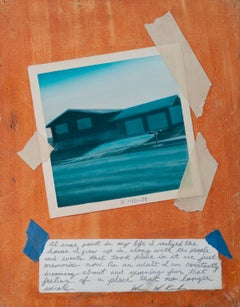 At some point in my life I realized the
house I grew up in along with the people
and events that took place in it are just
memories now. As an adult I am constantly
dreaming about and yearning for that
feeling of a place that no longer
exists